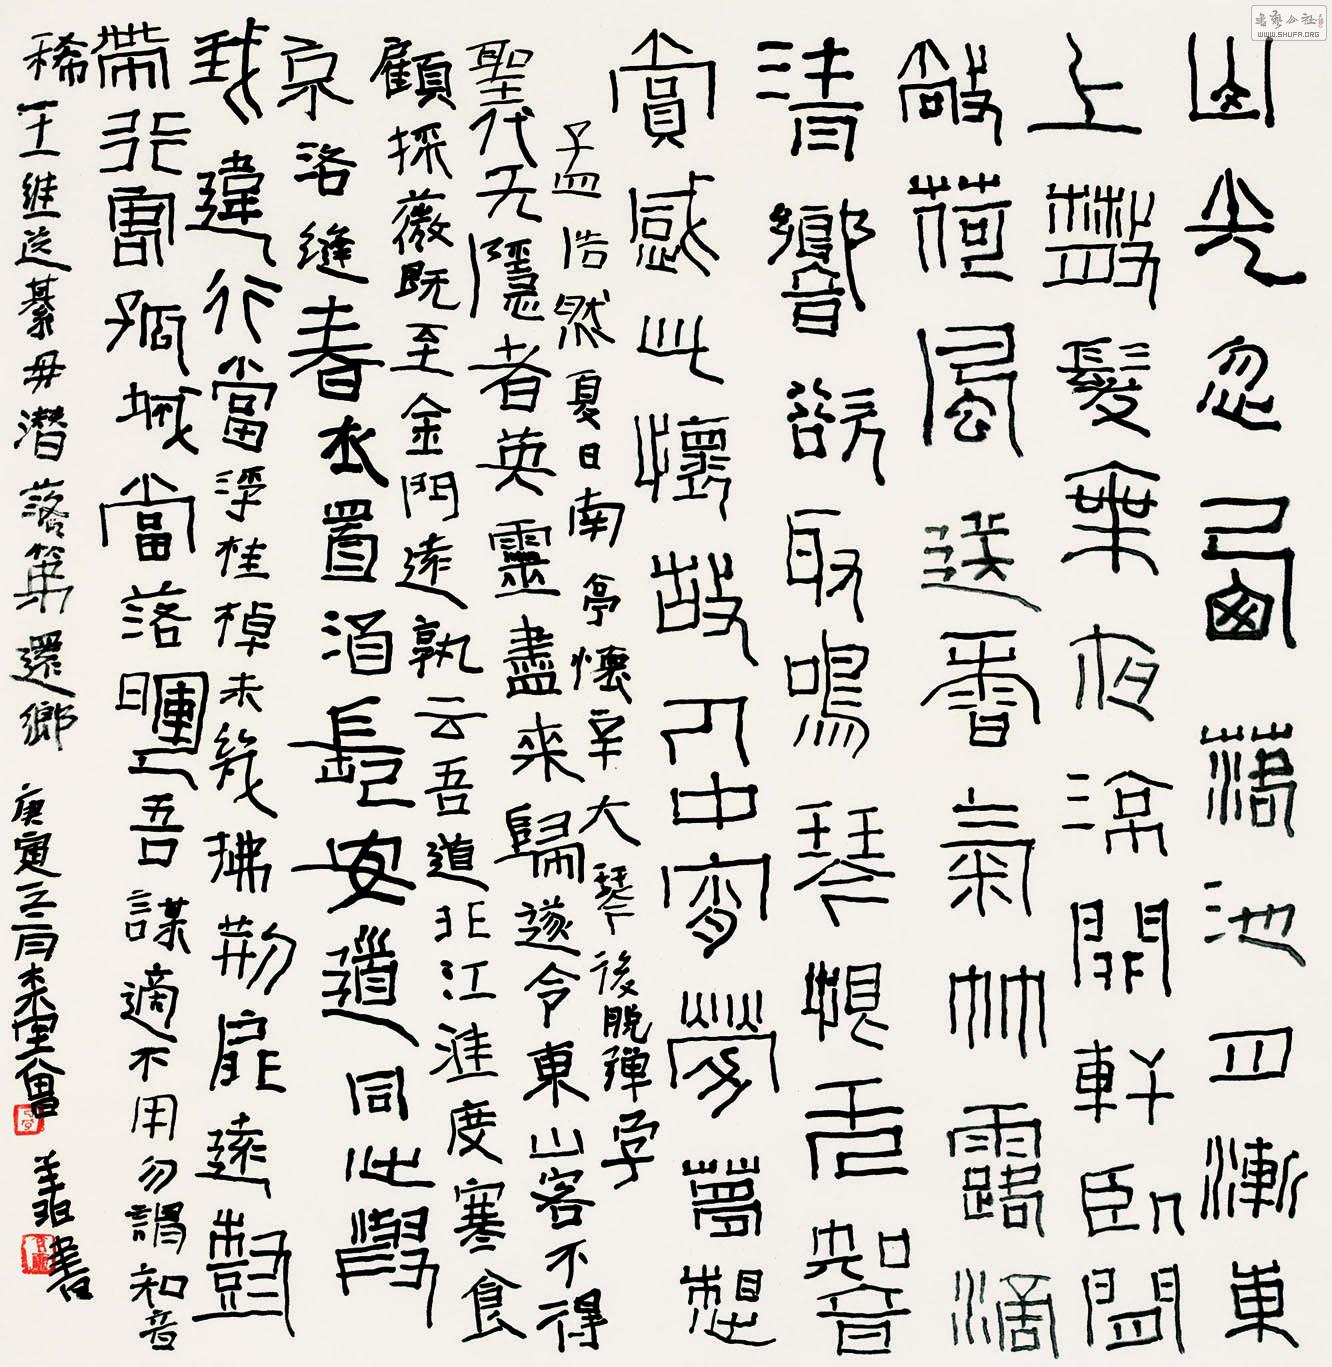 山光忽西落池月漸東
上散髮乘夜涼開軒臥閑
敞荷風送香氣竹露滴
清響欲取鳴琴恨无知音
賞感此懷故人中宵勞夢想
孟浩然夏日南亭懷辛大 琴後脱彈字
聖代无隱者英靈盡來歸遂令東山客不得
顧採薇既至金門遠孰云吾道非江淮度寒食
京洛縫春衣置酒長安道同心與
我違行當浮桂棹未幾拂荆扉遠樹
帶行客孤城當落暉吾謀適不用勿謂知音
稀 王維送綦毋潛落第還鄉 庚寅 書
WWW.SHUFA.ORG